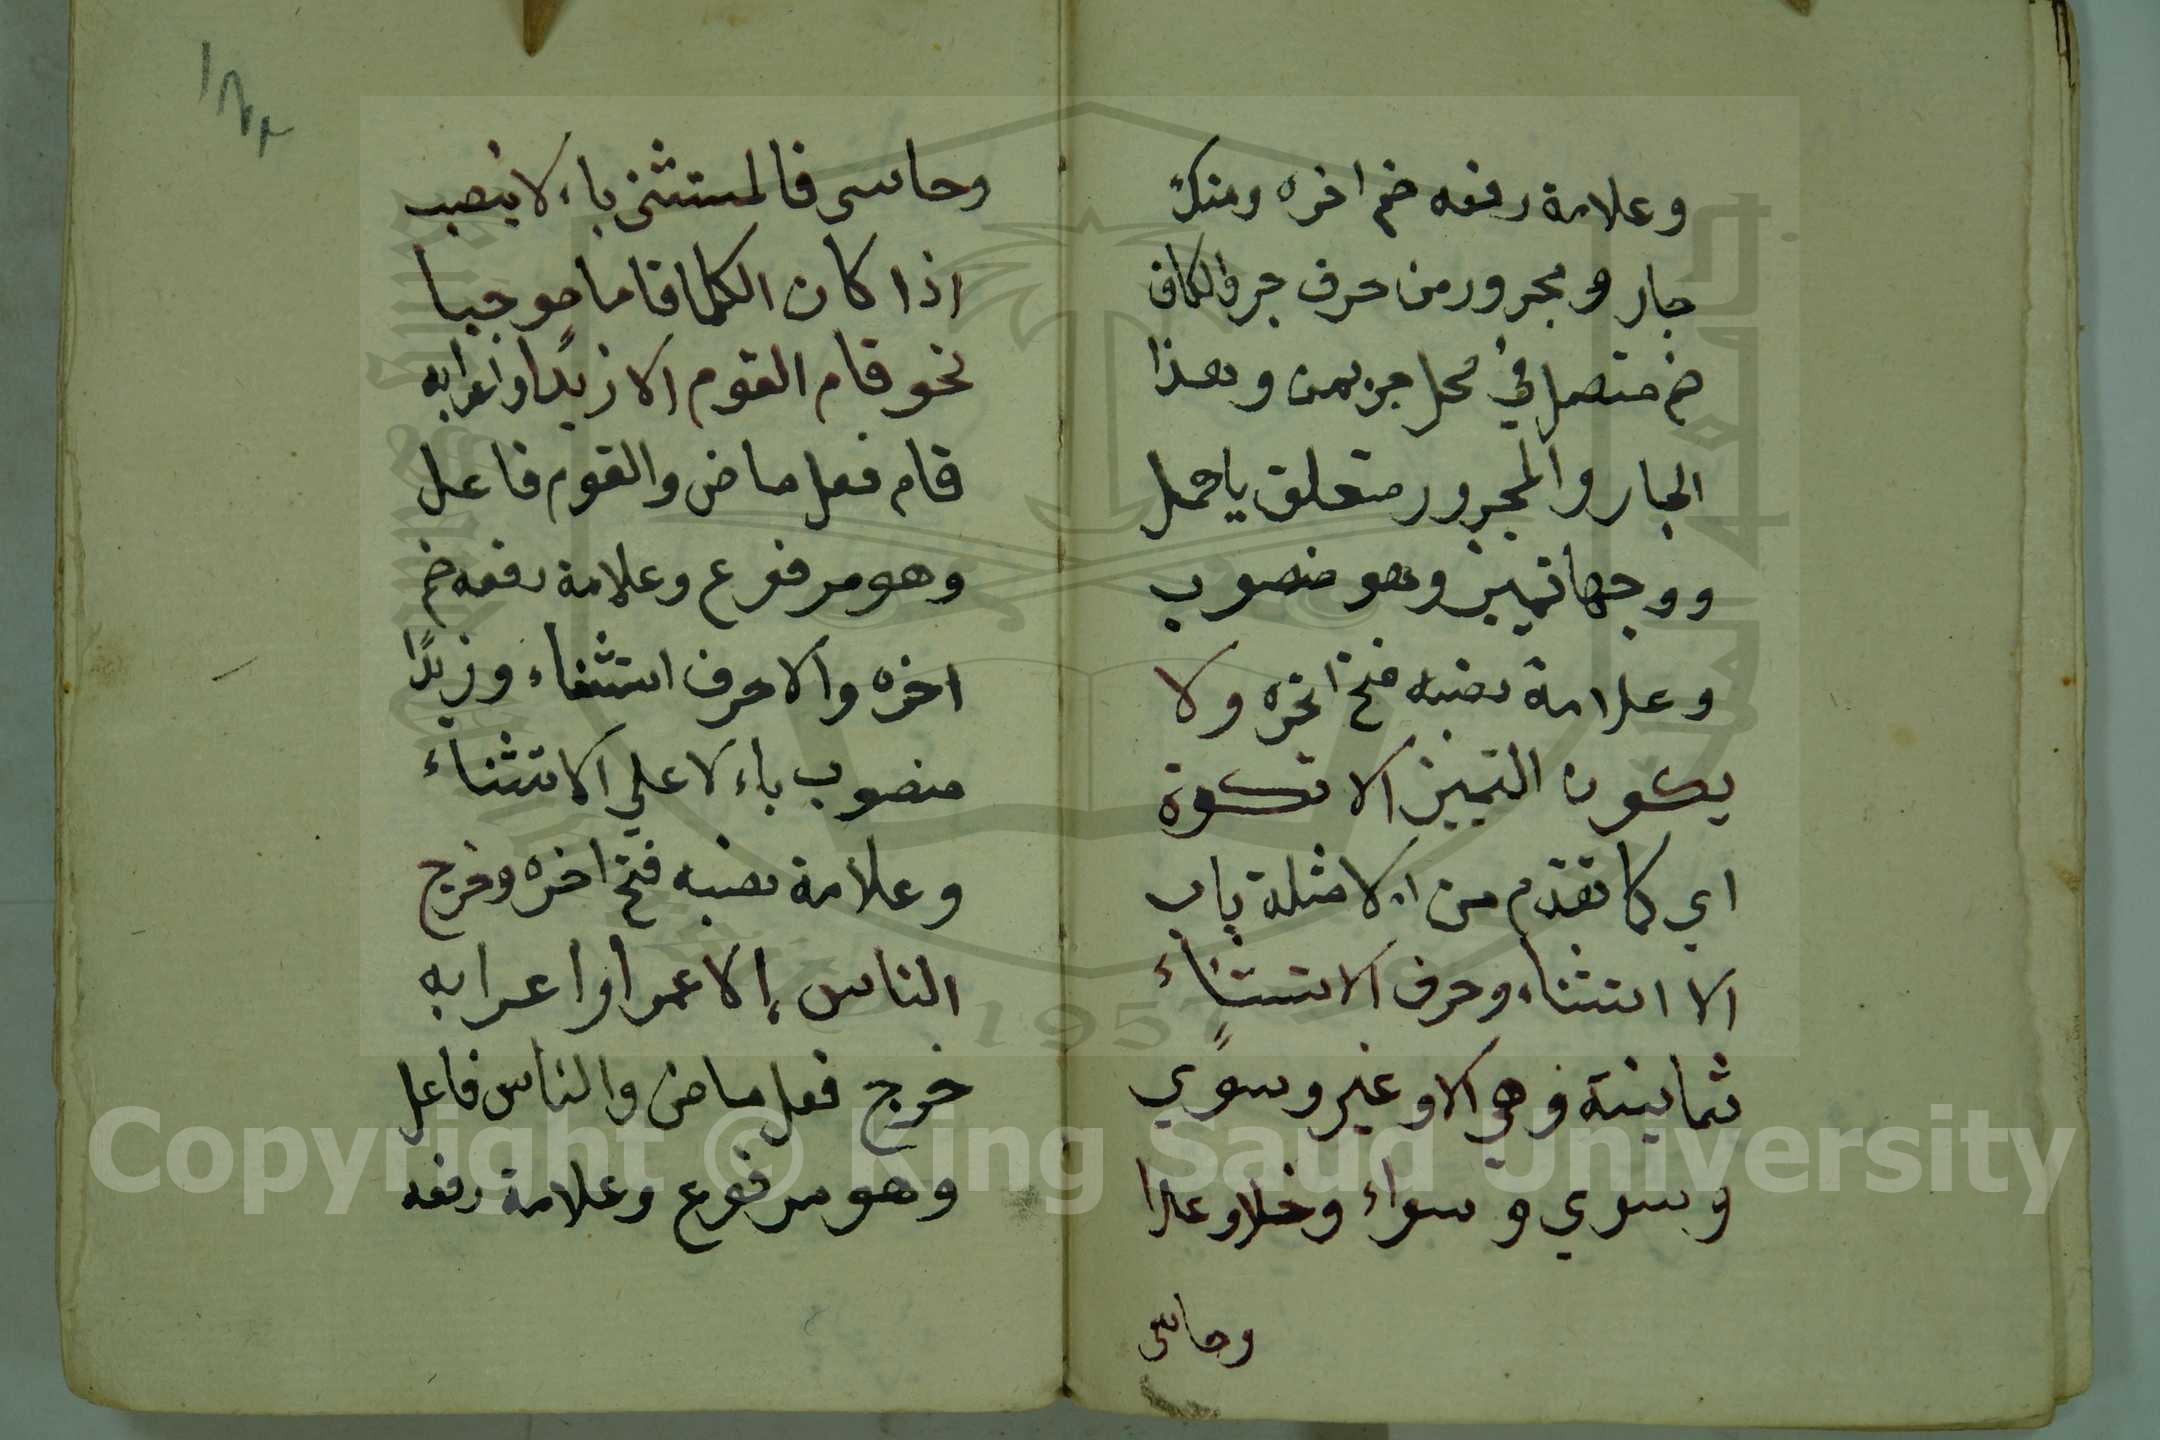 وعلامة رفعه ضم اخره ومنك
جار ومجرور من حرف جر والكاف
ضم متصل في محل جر بمن وهذا
الجار والمجرور متعلق باجمل
ووجها تمييز وهو منصوب
وعلامة نصبه فتح اخره ولا
يكون التمييز الا نكوة
اي كما تقدم من الامثلة باب
الا استثناء وحرف الاستثناء
ثمانية وهي الا وغير وسوي
وسوي وسواء وخلا وعدا
وحاسى
وحاسى فالمستثنى باء لا ينصب
اذا كان الكلما قاما موجبا
نحو قام القوم الا زيدا واعرابه
قام فعل ماض والقوم فاعل
وهو مرفوع وعلامة رفعه ضم
اخره والا حرف استثناء وزيدًا
منصوب باء لا علي الاستثناء
وعلامة نصبه فتح اخره وخرج
الناس إلا عمرا واعرابه
خرج فعل ماض والناس فاعل
وهو مرفوع وعلامة رفعه
1957
Copyright © King Saud University